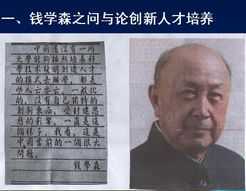 一、钱学森之问与论创新人才培养
中国还没有一所
大学能够按照培养科
学技术发明创造人才
的模式去办学，都是
些人云亦云、一般化
的，没有自己独特的
创新东西，受封建思
想的影响，一直是这
个样子。我看，这是
中国当前的一个很大
问题。
钱学森